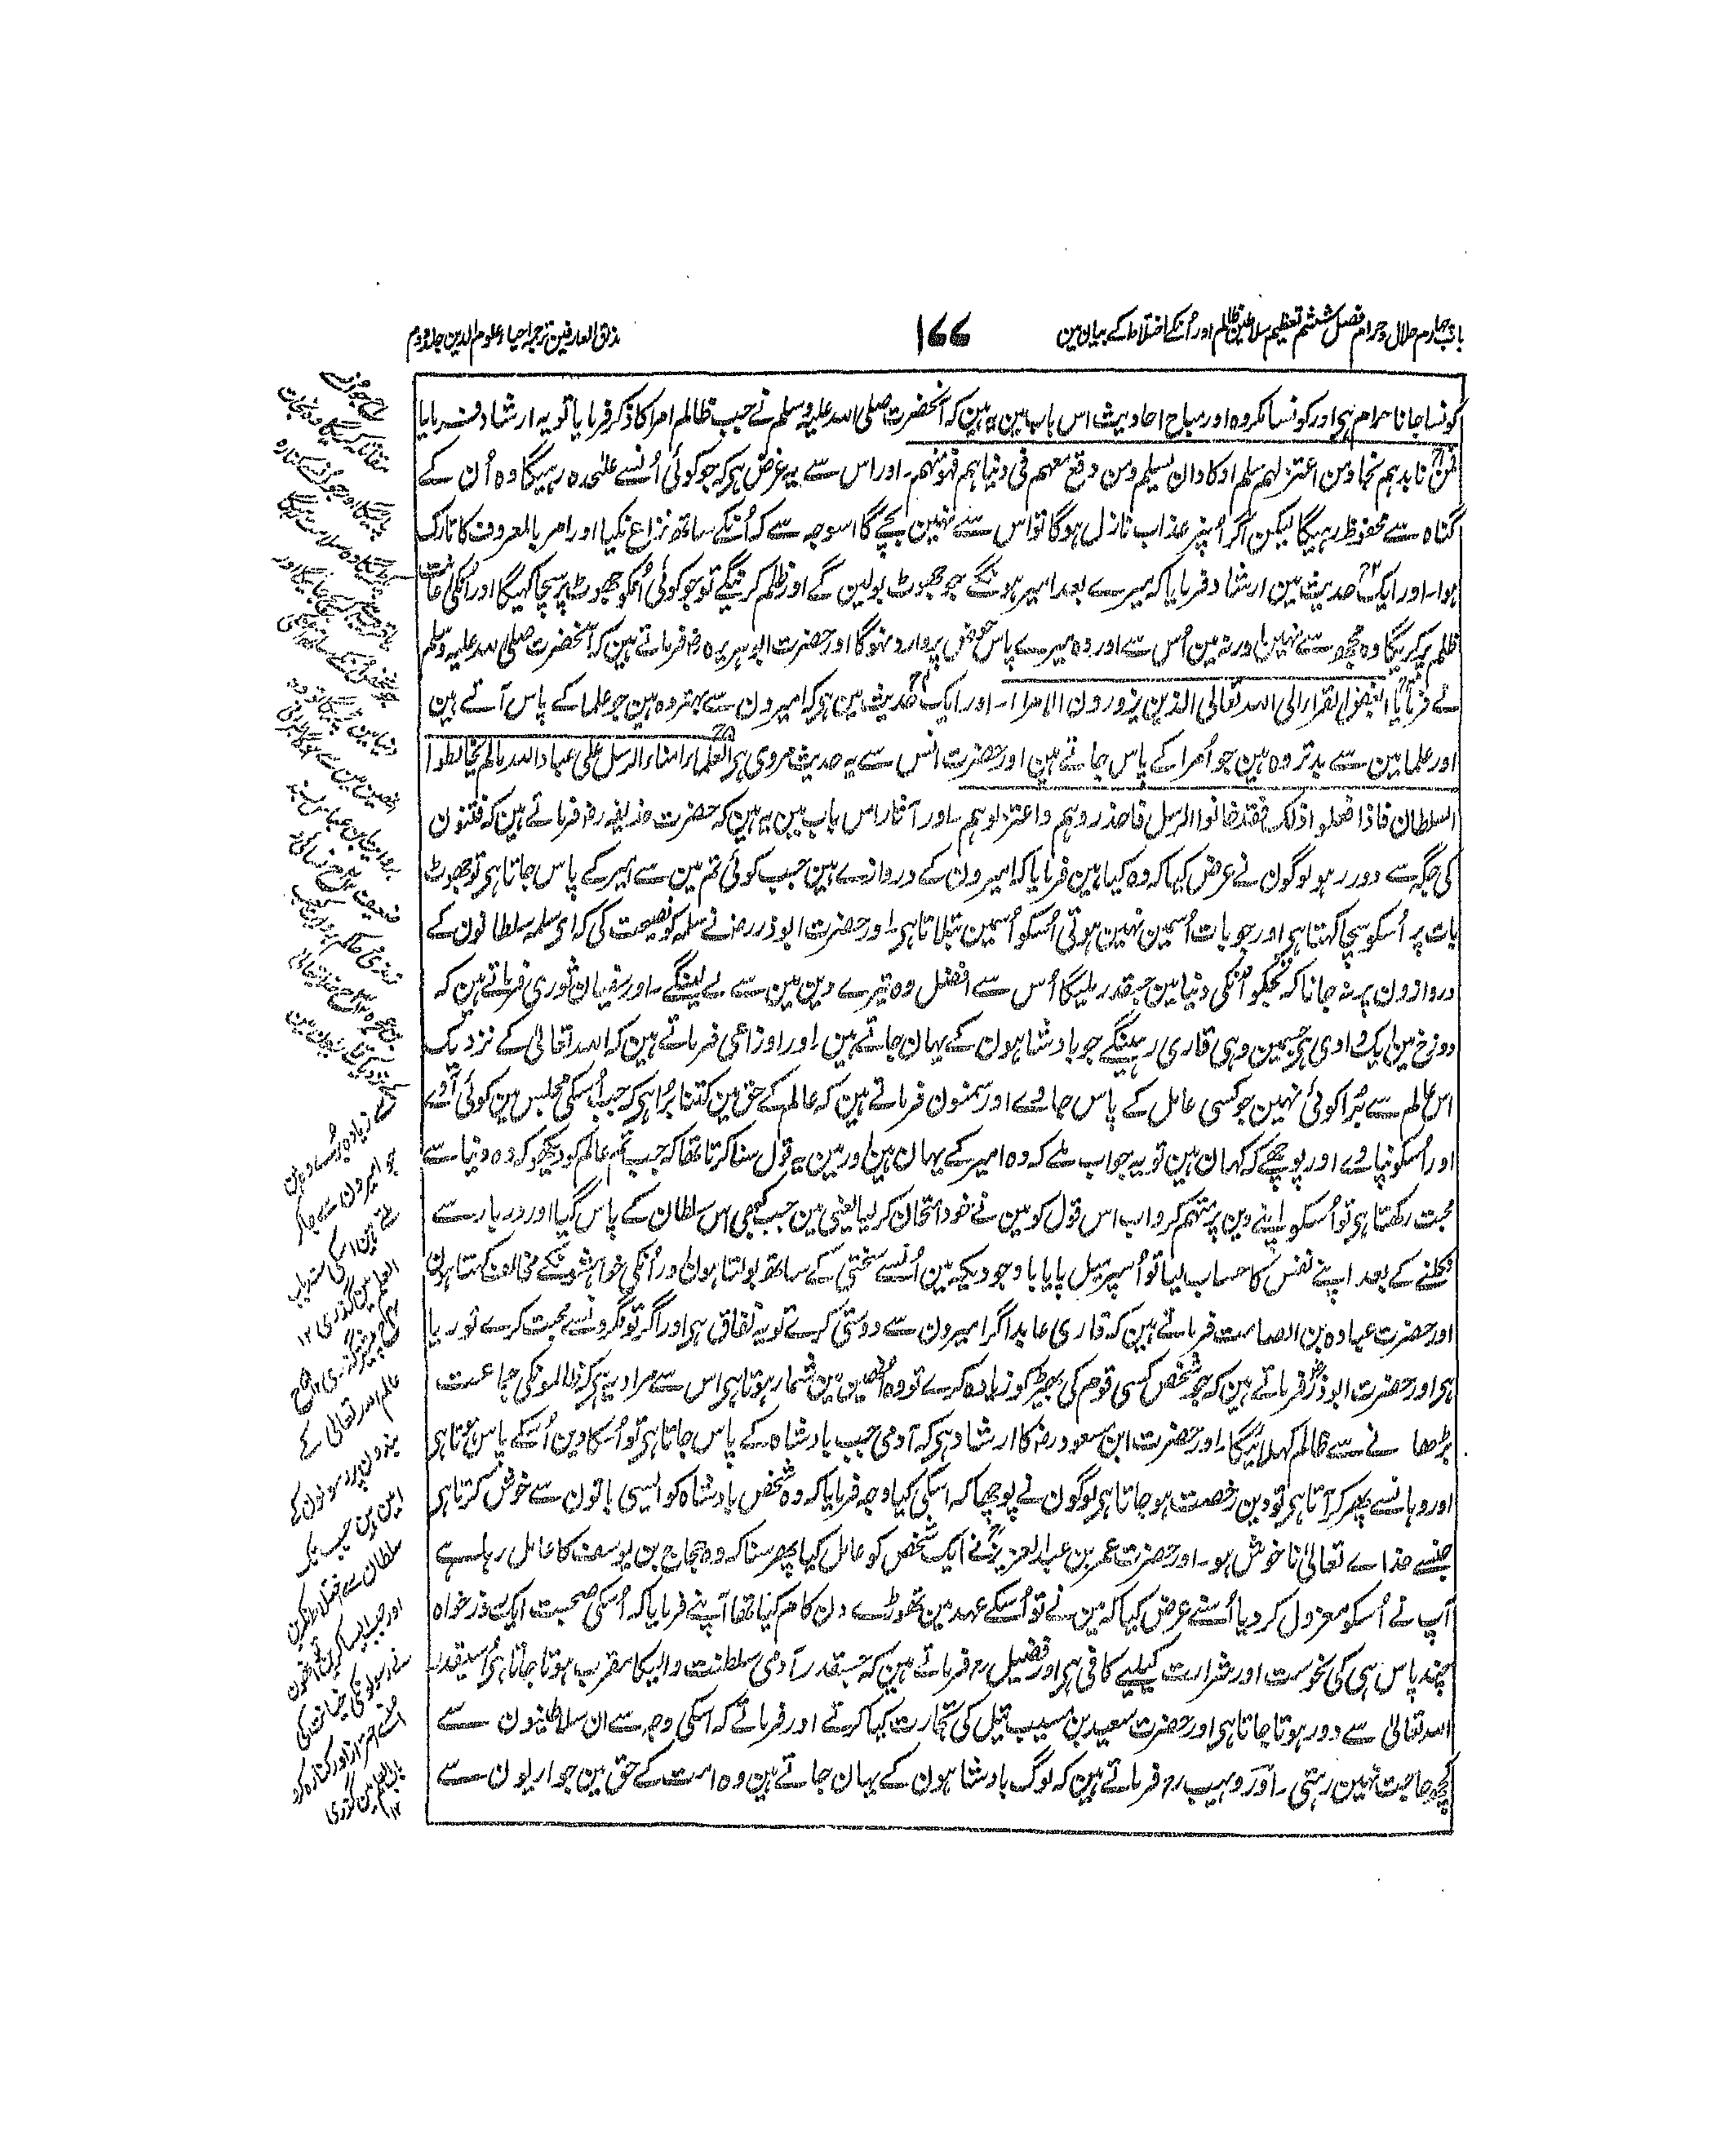 باب چہارم حلال و حرام فصل ششم تعظیم سلاطین ظالم اور اُنکے اختلاط کے بیان مین
۱۶۶
مذاق العارفین ترجمہ احیاء علوم الدین جلد دوم
کونسا جانا حرام ہی اور کونسا مکروہ اور مباح احادیث اس باب مین یہ ہین کہ آنحضرت صلی اللہ علیہ وسلم نے جب ظالم امرا کا ذکر فرمایا تو یہ ارشاد فرمایا
فمن نابذہم نجا ومن اعتزلہم سلم اوکادان یسلم ومن وقع معہم فی دنیاہم فہو منہم۔ اور اس سے یہ غرض ہی کہ جو کوئی اُنسے علٰحدہ رہیگا وہ اُن کے
گناہ سے محفوظ رہیگا لیکن اگر اُنپر عذاب نازل ہوگا تو اس سے نہین بچے گا اسوجہ سے کہ اُنکے ساتھ نزاع نکیا اور امر بالمعروف کا تارک
ہوا۔ اور ایک حدیث مین ارشاد فرمایا کہ میرے بعد امیر ہونگے جو جھوٹ بولین گے اور ظلم کرینگے تو جو کوئی اُنکو جھوٹ پر سچا کہیگا اور اُنکی اعانت
ظلم پر کریگا وہ مجھ سے نہین اور نہ مین اُس سے اور وہ میرے پاس حوض پر وارد نہوگا اور حضرت ابو ہریرہ رض فرماتے ہین کہ آنحضرت صلی اللہ علیہ وسلم
نے فرمایا ابغض القراء الی اللہ تعالی الذین یزورون الامراء۔ اور ایک حدیث مین ہی کہ امیرون سے بہتر وہ ہین جو علما کے پاس آتے ہین
اور علما مین سے بدتر وہ ہین جو اُمرا کے پاس جاتے ہین اور حضرت انس سے یہ حدیث مروی ہی العلماء امناء الرسل علی عباد اللہ مالم یخالطوا
السلطان فاذا فعلوا ذلک فقد خانوا الرسل فاحذروہم واعتزلوہم۔ اور آثار اس باب مین یہ ہین کہ حضرت حذیفہ رض فرماتے ہین کہ فتنون
کی جگہ سے دور رہو لوگون نے عرض کیا کہ وہ کیا ہین فرمایا کہ امیرون کے دروازے ہین جب کوئی تم مین سے امیر کے پاس جاتا ہی تو جھوٹ
بات پر اُسکو سچا کہتا ہی اور جو بات اُسمین نہین ہوتی اُسکو اُسمین بتلاتا ہی۔ اور حضرت ابوذر رض نے سلمہ کو نصیحت کی کہ ای سلمہ سلطانون کے
دروازون پر نہ جانا کہ تجکو اُنکی دنیا مین جسقدر ملیگا اُس سے افضل وہ تیرے دین مین سے لے لینگے۔ اور سفیان ثوری فرماتے ہین کہ
دوزخ مین ایک وادی ہی جسمین وہی قاری رہینگے جو بادشاہون کے یہان جاتے ہین۔ اور اوزاعی فرماتے ہین کہ اللہ تعالیٰ کے نزدیک
اس عالم سے بُرا کوئی نہین جو کسی عامل کے پاس جاوے اور سمنون فرماتے ہین کہ عالم کے حق مین کتنا بُرا ہی کہ جب اُسکی مجلس مین کوئی آوے
اور اُسکو نپاوے اور پوچھے کہ کہان ہین تو یہ جواب ملے کہ وہ امیر کے یہان ہین اور مین یہ قول سنا کرتا تھا کہ جب تم عالم کو دیکھو کہ وہ دنیا سے
محبت رکھتا ہی تو اُسکو اپنے دین پر متہم کرو اب اس قول کو مین نے خود امتحان کر لیا یعنی مین جب کبھی اس سلطان کے پاس گیا اور دربار سے
نکلنے کے بعد اپنے نفس کا حساب لیا تو اُسپر میل پایا باوجودیکہ مین اُنسے سختی کے ساتھ بولتا ہون اور اُنکی خواہشونکے مخالف کہتا ہون
اور حضرت عبادہ بن الصامت فرماتے ہین کہ قاری عابد اگر امیرون سے دوستی کرے تو یہ نفاق ہی اور اگر تونگرونسے محبت کرے تو ریا
ہی اور حضرت ابوذر رض فرماتے ہین کہ جو شخص کسی قوم کی بھیڑ کو زیادہ کرے تو وہ اُنھین مین شمار ہوتا ہی اس سے مراد یہ ہی کہ ظالمونکی جماعت
بڑھانے سے ظالم کہلائیگا۔ اور حضرت ابن مسعود رض کا ارشاد ہی کہ آدمی جب بادشاہ کے پاس جاتا ہی تو اُسکا دین اُسکے پاس ہوتا ہی
اور وہانسے پھر کر آتا ہی تو دین رخصت ہو جاتا ہی لوگون نے پوچھا کہ اسکی کیا وجہ فرمایا کہ وہ شخص بادشاہ کو ایسی باتون سے خوش کرتا ہی
جنسے خداے تعالیٰ ناخوش ہو۔ اور حضرت عمر بن عبدالعزیز نے ایک شخص کو عامل کیا پھر سنا کہ وہ حجاج بن یوسف کا عامل رہا ہے
آپ نے اُسکو معزول کر دیا اُسنے عرض کیا کہ مین نے تو اُسکے عہد مین تھوڑے دن کام کیا تھا آپنے فرمایا کہ اُسکی صحبت ایک روز خواہ
چند پاس ہی کی نحوست اور شرارت کیلیے کافی ہی اور فضیل رہ فرماتے ہین کہ جسقدر آدمی سلطنت والیکا مقرب ہوتا جاتا ہی اُسیقدر
اللہ تعالیٰ سے دور ہوتا جاتا ہی اور حضرت سعید بن مسیب تیل کی تجارت کیا کرتے اور فرماتے کہ اسکی وجہ سے ان سلاطینون سے
کچھ حاجت نہین رہتی۔ اور وہیب رہ فرماتے ہین کہ لوگ بادشاہون کے یہان جاتے ہین وہ امت کے حق مین جواریون سے
جو اُنسے
مقاتلہ کریگا وہ نجات
پائیگا اور جو اُنسے کنارہ
دنیا مین
ضعیف
کے نزدیک
سے زیادہ بُرے وہ ہین
جو امیرون سے جاکر
ملتے ہین اسکی سند باب
العلم مین گذری ۱۲
عالم اللہ تعالیٰ کے
بندون پر رسولون کے
امین ہین جب تک
سلطان سے اختلاط نکرین
اور جب ایسا کرین تو اُنھون
نے رسولونکی خیانت کی
اُنسے احتراز اور کنارہ کرو
باب العلم مین گذری
۱۲